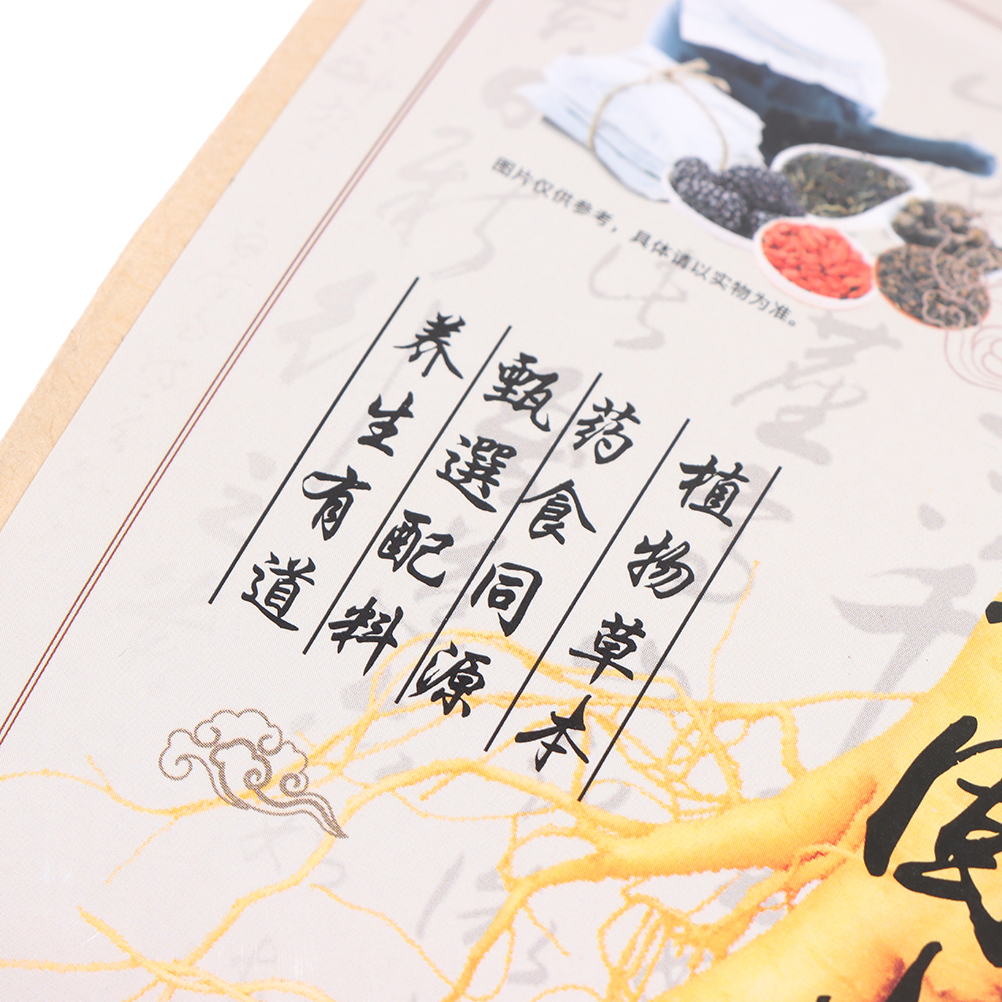 图片仅供参考，具体请以实物为准。
植物草本
药食同源
甄選配料
养生有道